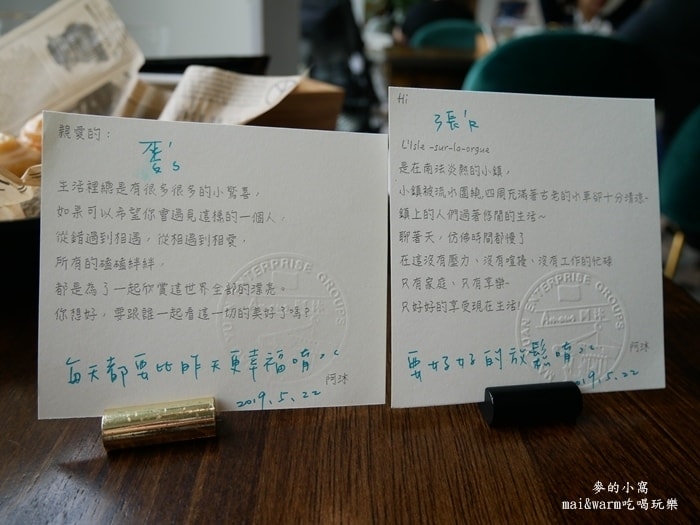 親愛的：
生活裡總是有很多很多的小驚喜，
如果可以希望你會遇見這樣的一個人，
從錯過到相遇，從相遇到相愛，
所有的磕磕絆絆，
都是為了一起欣賞這世界全部的漂亮。
你想好，要跟誰一起看這一切的美好了嗎?
每天都要比昨天更幸福唷
阿沐
2019.5.22
ENTERPRISE GROUPS
Hi
張'R
L'Isle -sur-la-orgue
是在南法炎熱的小鎮，
小鎮被流水圍繞，四周充滿著古老的水車卻十分清涼~
鎮上的人們過著悠閒的生活~
聊著天，仿佛時間都慢了
在這沒有壓力、沒有喧擾、沒有工作的忙碌
只有家庭、只有享樂~
只好好的享受現在生活!
要好好的放鬆唷
阿沐
2019.5.22
ENTERPRISE GROUPS
麥的小窩
mai&warm吃喝玩樂